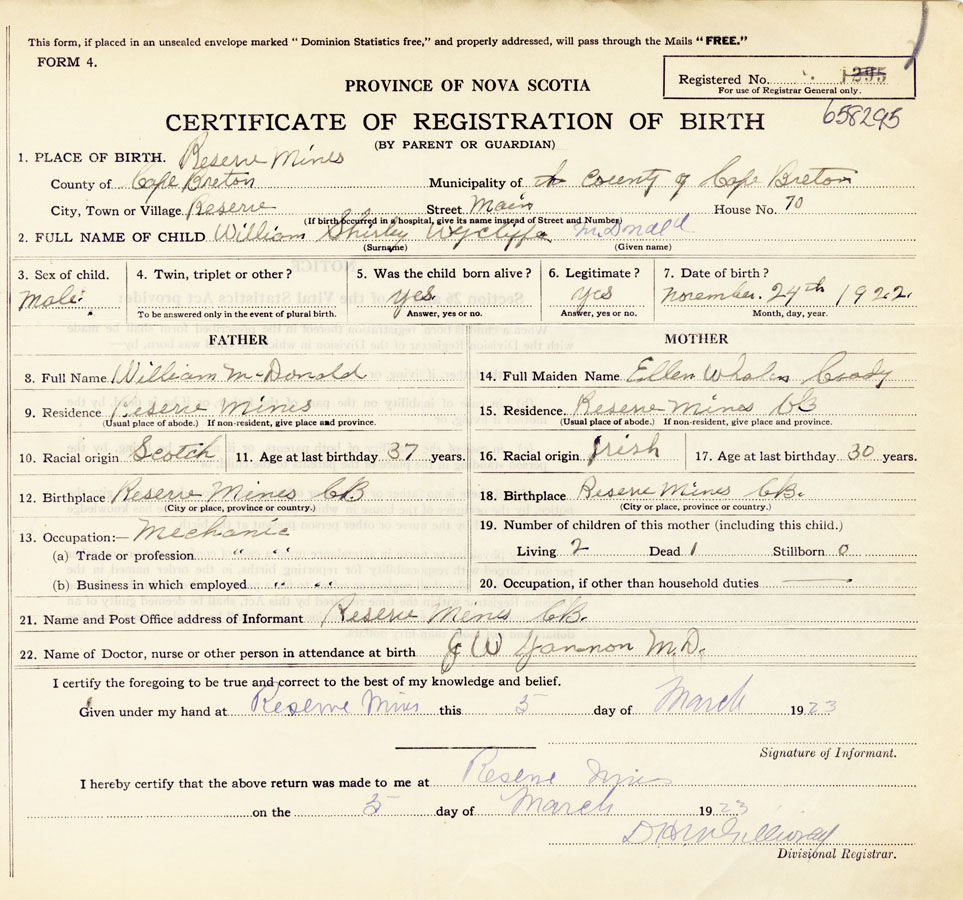 This form, if placed in an unsealed envelope marked “ Dominion Statistics free,” and properly addressed, will pass through the Mails “ FREE.”
FORM 4.
Registered No. 1295
For use of Registrar General only.
PROVINCE OF NOVA SCOTIA
658295
CERTIFICATE OF REGISTRATION OF BIRTH
(BY PARENT OR GUARDIAN)
1. PLACE OF BIRTH. Reserve Mines
County of Cape Breton Municipality of County of Cape Breton
City, Town or Village Reserve Street Main House No. 70
(If birth occurred in a hospital, give its name instead of Street and Number)
2. FULL NAME OF CHILD William Shirley Wycliffe McDonald
(Surname) (Given name)
3. Sex of child. 4. Twin, triplet or other? 5. Was the child born alive? 6. Legitimate? 7. Date of birth?
Male. yes. yes November. 24th 1922.
To be answered only in the event of plural birth. Answer, yes or no. Answer, yes or no. Month, day, year.
FATHER MOTHER
8. Full Name William McDonald 14. Full Maiden Name Ellen Coady
9. Residence Reserve Mines 15. Residence. Reserve Mines CB
(Usual place of abode.) If non-resident, give place and province. (Usual place of abode.) If non-resident, give place and province.
10. Racial origin Scotch 11. Age at last birthday 37 years. 16. Racial origin Irish 17. Age at last birthday 30 years.
12. Birthplace Reserve Mines CB 18. Birthplace Reserve Mines CB.
(City or place, province or country.) (City or place, province or country.)
13. Occupation:— Mechanic 19. Number of children of this mother (including this child.)
(a) Trade or profession " " Living 2 Dead 1 Stillborn 0
(b) Business in which employed " " 20. Occupation, if other than household duties —
21. Name and Post Office address of Informant Reserve Mines CB.
22. Name of Doctor, nurse or other person in attendance at birth J W M.D.
I certify the foregoing to be true and correct to the best of my knowledge and belief.
Given under my hand at Reserve Mines this 5 day of March 1923
Signature of Informant.
I hereby certify that the above return was made to me at Reserve Mines
on the 5 day of March 1923
D H McGillivray
Divisional Registrar.